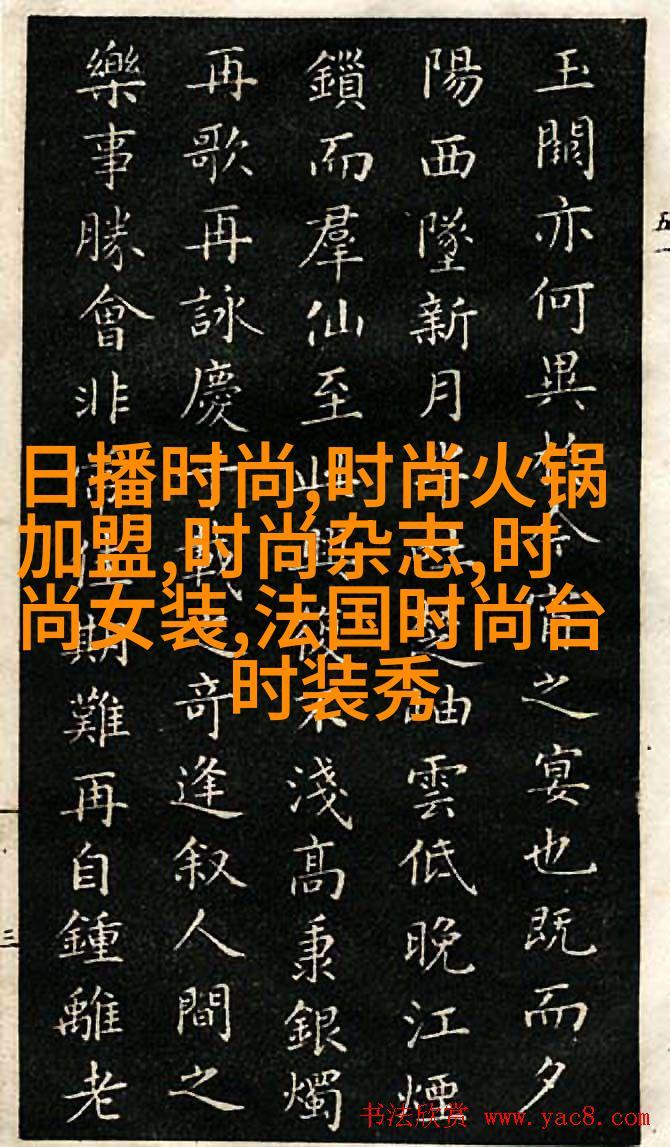 玉關亦何異於今宵之宴也既而夕
陽西墜新月岫雲低晚江煙
鎖而羣仙至此不淺高秉銀燭
再歌再詠慶千載之奇逢叙人間之
樂事勝會非期難再自鍾離老
五
三
日播时尚,时尚火锅
加盟,时尚杂志,时
尚女装,法国时尚台
时装秀
书法欣赏 www.yac8.com